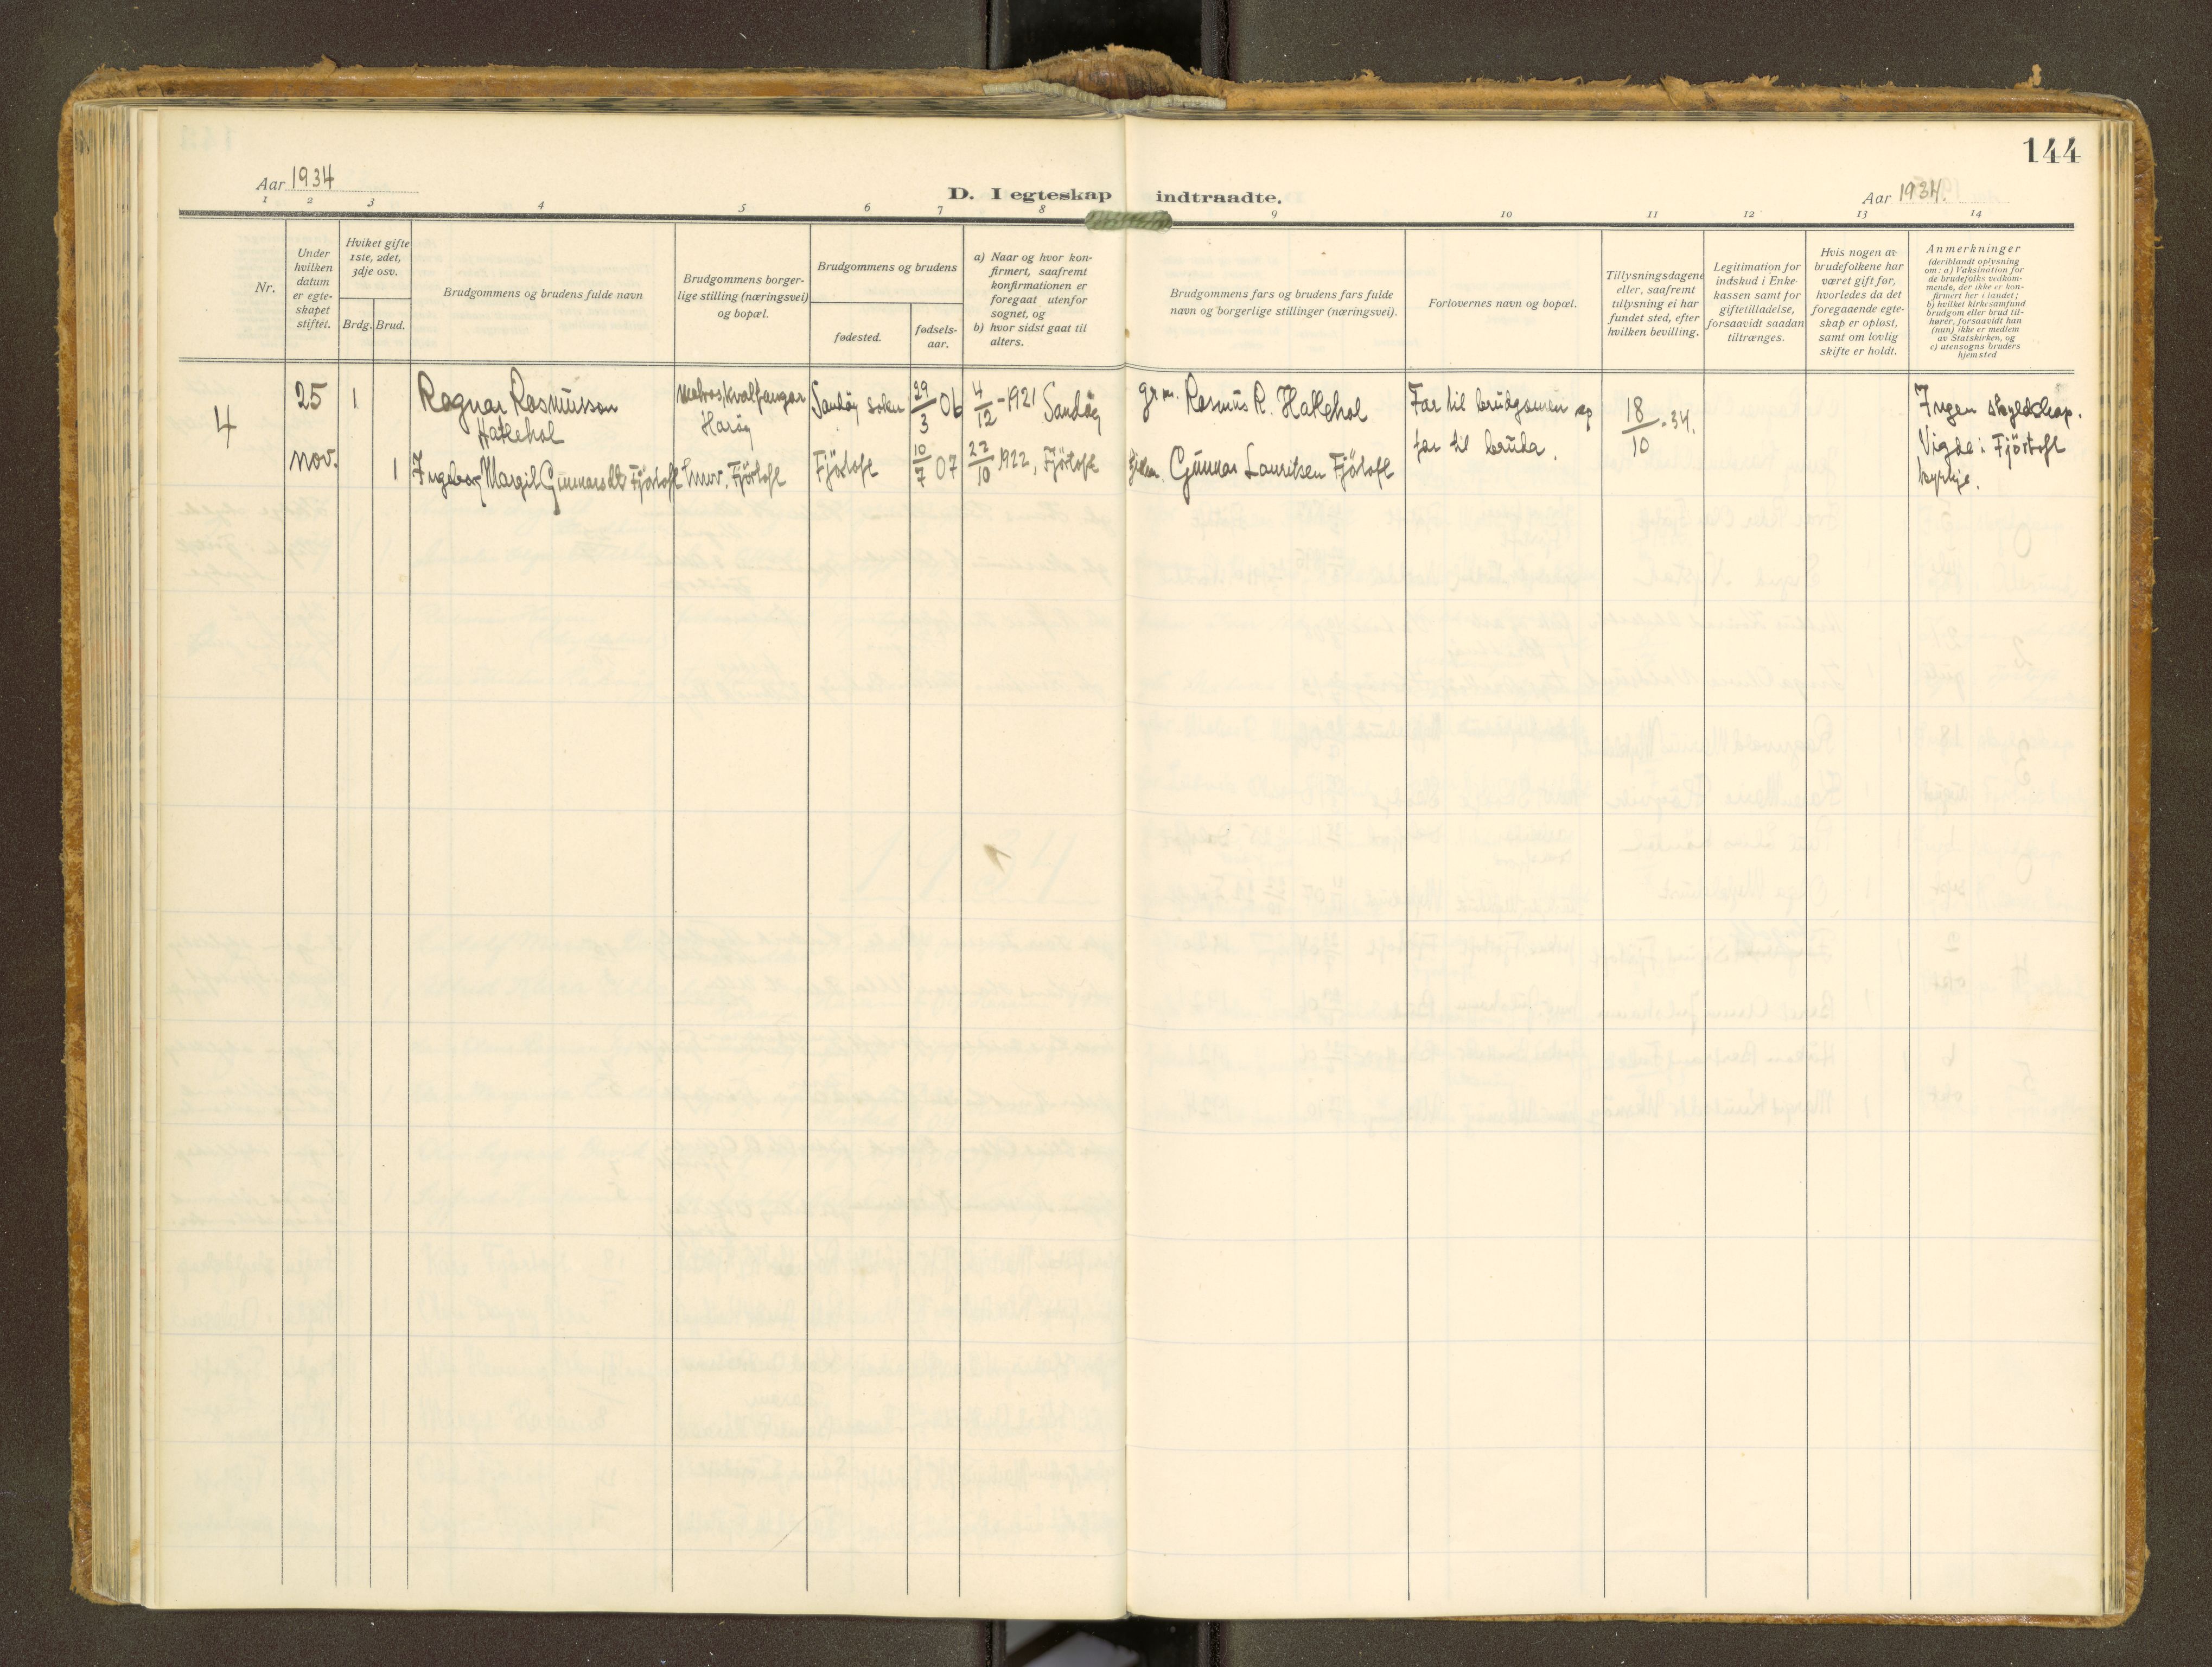 144
Aar 1934
D. I egteskap indtraadte.
Aar 1934.
1 2 3 4 5 6 7 8 9 10 11 12 13 14
Nr.
Under
hvilken
datum
er egte-
skapet
stiftet.
Hviket gifte
1ste, 2det,
3dje osv.
Brdg. Brud.
Brudgommens og brudens fulde navn
Brudgommens borger-
lige stilling (næringsvei)
og bopæl.
Brudgommens og brudens
fødested.
fødsels-
aar.
a) Naar og hvor kon-
firmert, saafremt
konfirmationen er
foregaat utenfor
sognet, og
b) hvor sidst gaat til
alters.
Brudgommens fars og brudens fars fulde
navn og borgerlige stillinger (næringsvei).
Forlovernes navn og bopæl.
Tillysningsdagene
eller, saafremt
tillysning ei har
fundet sted, efter
hvilken bevilling.
Legitimation for
indskud i Enke-
kassen samt for
giftetilladelse,
forsaavidt saadan
tiltrænges.
Hvis nogen av
brudefolkene har
været gift før,
hvorledes da det
foregaaende egte-
skap er opløst,
samt om lovlig
skifte er holdt.
Anmerkninger
(deriblandt oplysning
om: a) Vaksination for
de brudefolks vedkom-
mende, der ikke er kon-
firmert her i landet;
b) hvilket kirkesamfund
brudgom eller brud til-
hører, forsaavidt han
(hun) ikke er medlem
av Statskirken, og
c) utensogns bruders
hjemsted
4
25
nov.
1
Ragnar Rasmusson
Hatlehol
Matros, kvalfangar
Harøy
Sandøy sokn
29/3 06
4/12 - 1921 Sandøy
gr.m. Rasmus R. Hatlehol
Far til brudgomen og
far til bruda.
18/10 - 34.
Ingen skyldskap.
Vigde i Fjörtoft
kyrkje.
1
Ingeborg Margit Gunnarsdtr Fjörtoft
Fjörtoft
Fjörtoft
10/7 07
22/10 1922, Fjörtoft
Gunnar Lauritsen Fjörtoft